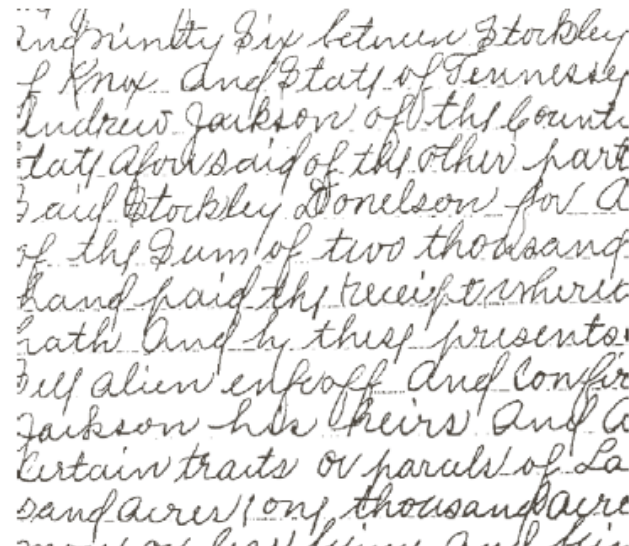 and ninity Six between Stockley
of Knox and State of Tennessey
Andrew Jackson of the Counti
tate aforisaid of the other part
Said Stockley Donelson for a
of the Sum of two thousand
hand paid the receipt wherio
hath and by these presents
Sell alien enfeoff and confir
Jackson his heirs and a
Certain traits or parcels of La
sand acres, one thousand acre
more or less lying and bein